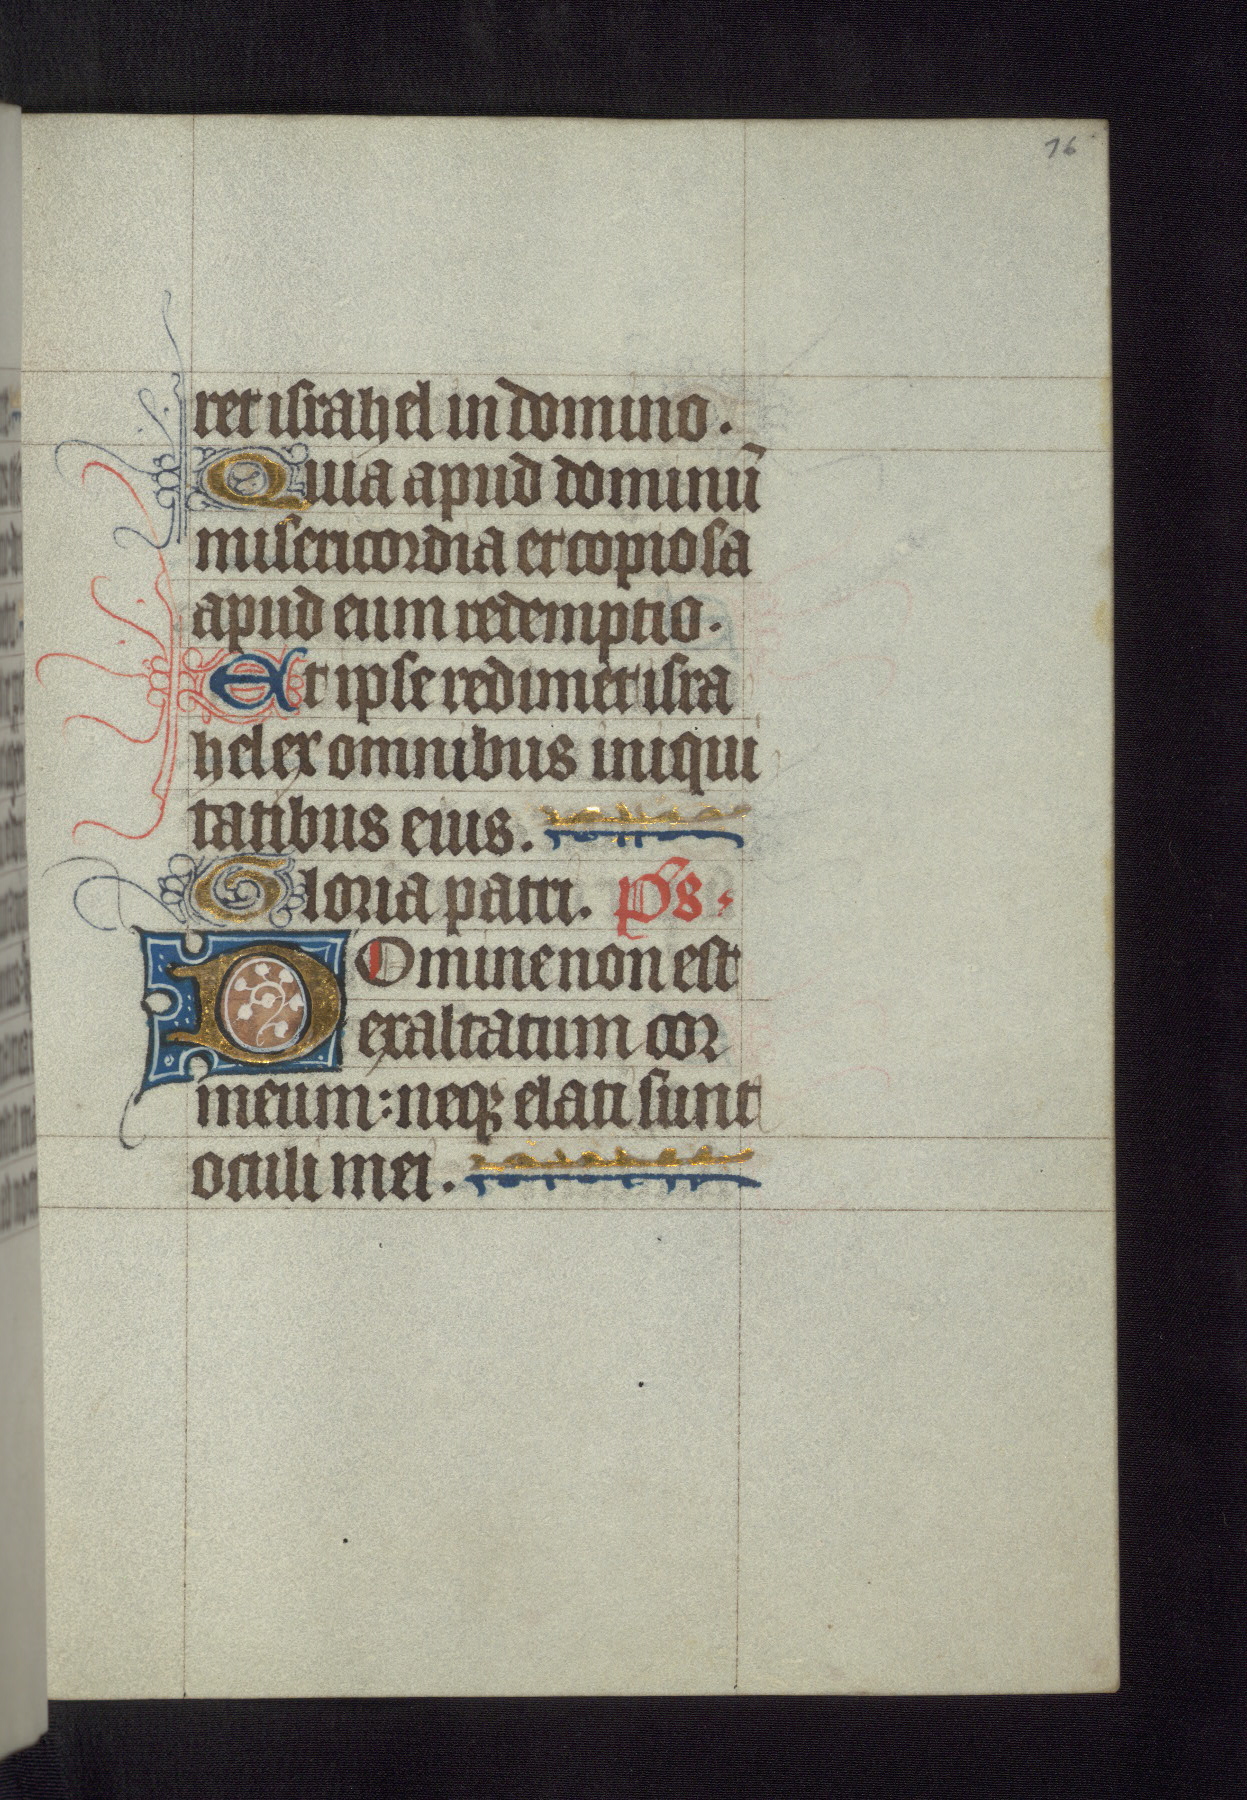 76
ret israhel in domino.
Quia apud dominū
misericordia et copiosa
apud eum redemptio.
Et ipse redimet isra
hel ex omnibus iniqui
tatibus eius.
Gloria patri. ps.
Domine non est
exaltatum cor
meum: neqꝫ elati sunt
oculi mei.